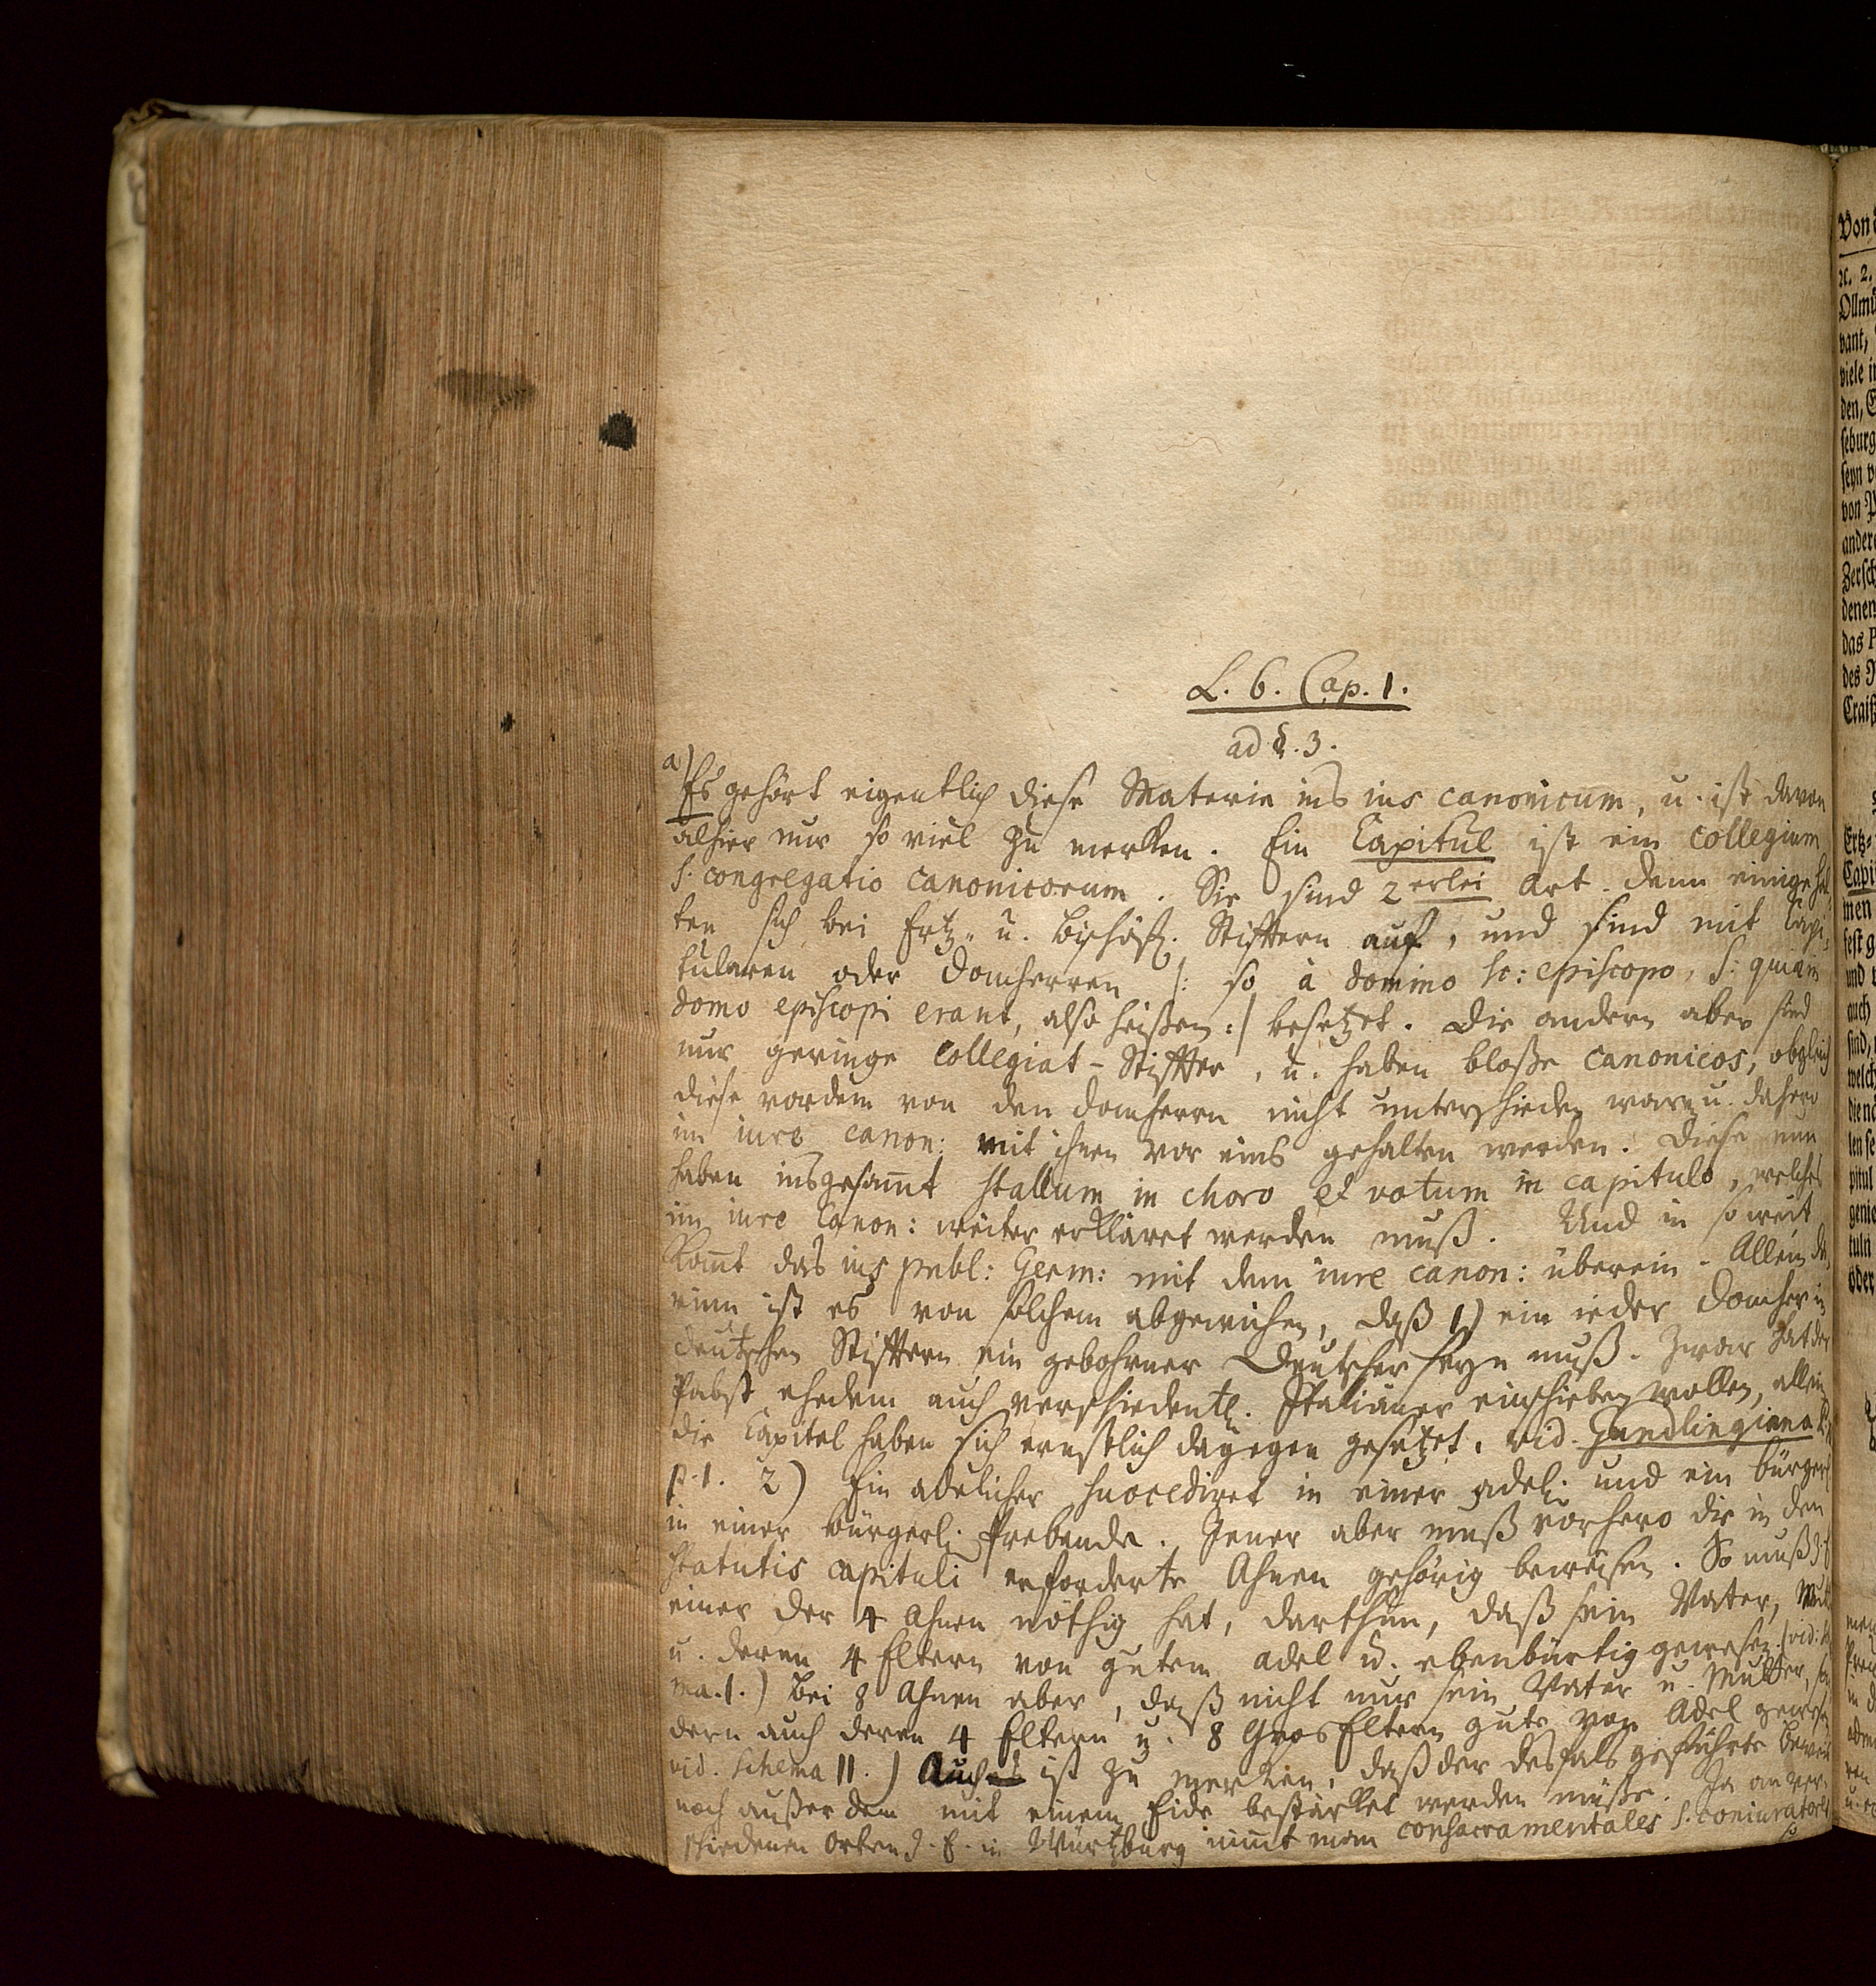 L. 6. Cap. 1.
ad §. 3.
a) Es gehört eigentlich diese Materie ins ius canonicum, u. ist davon
alhier nur so viel zu merken. Ein Capitul ist ein collegium
s. congregatio canonicorum. Sie sind 2erlei Art. denn einige hal-
ten sich bei Ertz- u. Bischöfl. Stifftern auf, und sind mit Capi-
tularen oder Domherren /: so à domino sc: episcopo, s: quia in
domo episcopi erant, also heißen :/ besetzet. Die andern aber sind
nur geringe Collegiat-Stiffter, u. haben bloße canonicos, obgleich
diese vordem von den Domherrn nicht unterschieden waren u. dahero
im iure canon: mit ihnen vor eins gehalten werden. Diese nun
haben insgesamt stallum in choro et votum in capitulo, welches
im iure Canon: weiter erkläret werden muß. Und in so weit
kommt das ius publ: Germ: mit dem iure canon: überein. Allein da-
rinn ist es von solchem abgewichen, daß 1) ein ieder Domherr in
deutschen Stifftern ein gebohrner Deutscher seyn muß. Zwar hat der
Pabst ehedem auch verschiedentl. Italiäner einschieben wollen, allein
die Capitel haben sich ernstlich dagegen gesetzet. vid. Gundlingiana
p. 1. 2) Ein adelicher succediret in einer adel. und ein bürgerl.
in einer bürgerl. Præbende. Jener aber muß vorhero die in den
statutis capituli erforderte Ahnen gehörig beweisen. So muß z. E.
einer der 4 Ahnen nöthig hat, darthun, daß sein Vater, Mutter
u. deren 4 Eltern von gutem Adel u. ebenbürtig gewesen. (vid: Sche-
ma. 1.) Bei 8 Ahnen aber, daß nicht nur sein Vater u. Mutter, son-
dern auch deren 4 Eltern u. 8 GrosEltern gute von Adel gewesen
vid. Schema II.) Auch ist zu merken, daß der desfals geführte Beweis
noch außerdem mit einem Eide bestärket werden müsse. Ja an ver-
schiedenen Orten z. E. in Würtzburg nimmt man consacramentales s. coniuratores
Von
N. 2.
Ollmü
vant,
viele i
den, E
seburg
seyn v
von P
ander
Zersch
denen
das P
des R
Craiß
Ertz-
Capi
men
fest g
und
auch
sind,
welch
die nä
len se
pitul
genie
tuln
oder